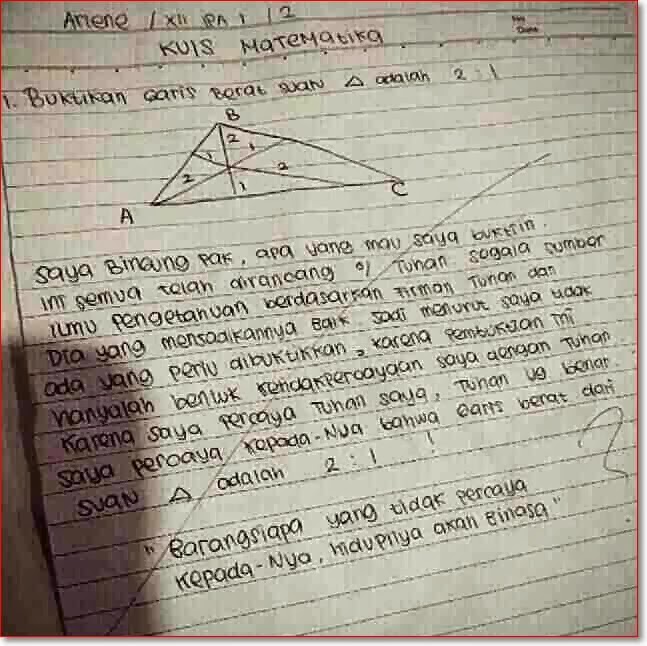 Arlene / XII IPA 1 / 2
No
Date
KUIS MATEMATIKA
1. BUKTIKAN GARIS BERAT SUATU △ adalah 2 : 1
B
2
1
1
2
2
1
A
C
Saya Bingung Pak, apa yang mau saya buktiin.
Ini semua telah dirancang o/ Tuhan segala sumber
ilmu pengetahuan berdasarkan Firman Tuhan dan
Dia yang menjadikannya Baik. Jadi menurut saya tidak
ada yang perlu dibuktikkan, karena pembuktian ini
hanyalah bentuk ketidakpercayaan saya dengan Tuhan.
Karena saya percaya Tuhan saya, Tuhan yg benar.
saya percaya kepada-Nya bahwa Garis berat dari
SUATU △ adalah 2 : 1 !
" Barangsiapa yang tidak percaya
kepada-Nya, hidupnya akan Binasa "